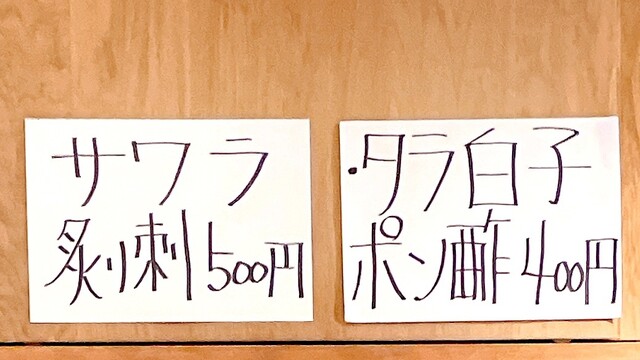 サワラ
炙り刺 500円
・タラ白子
ポン酢 400円